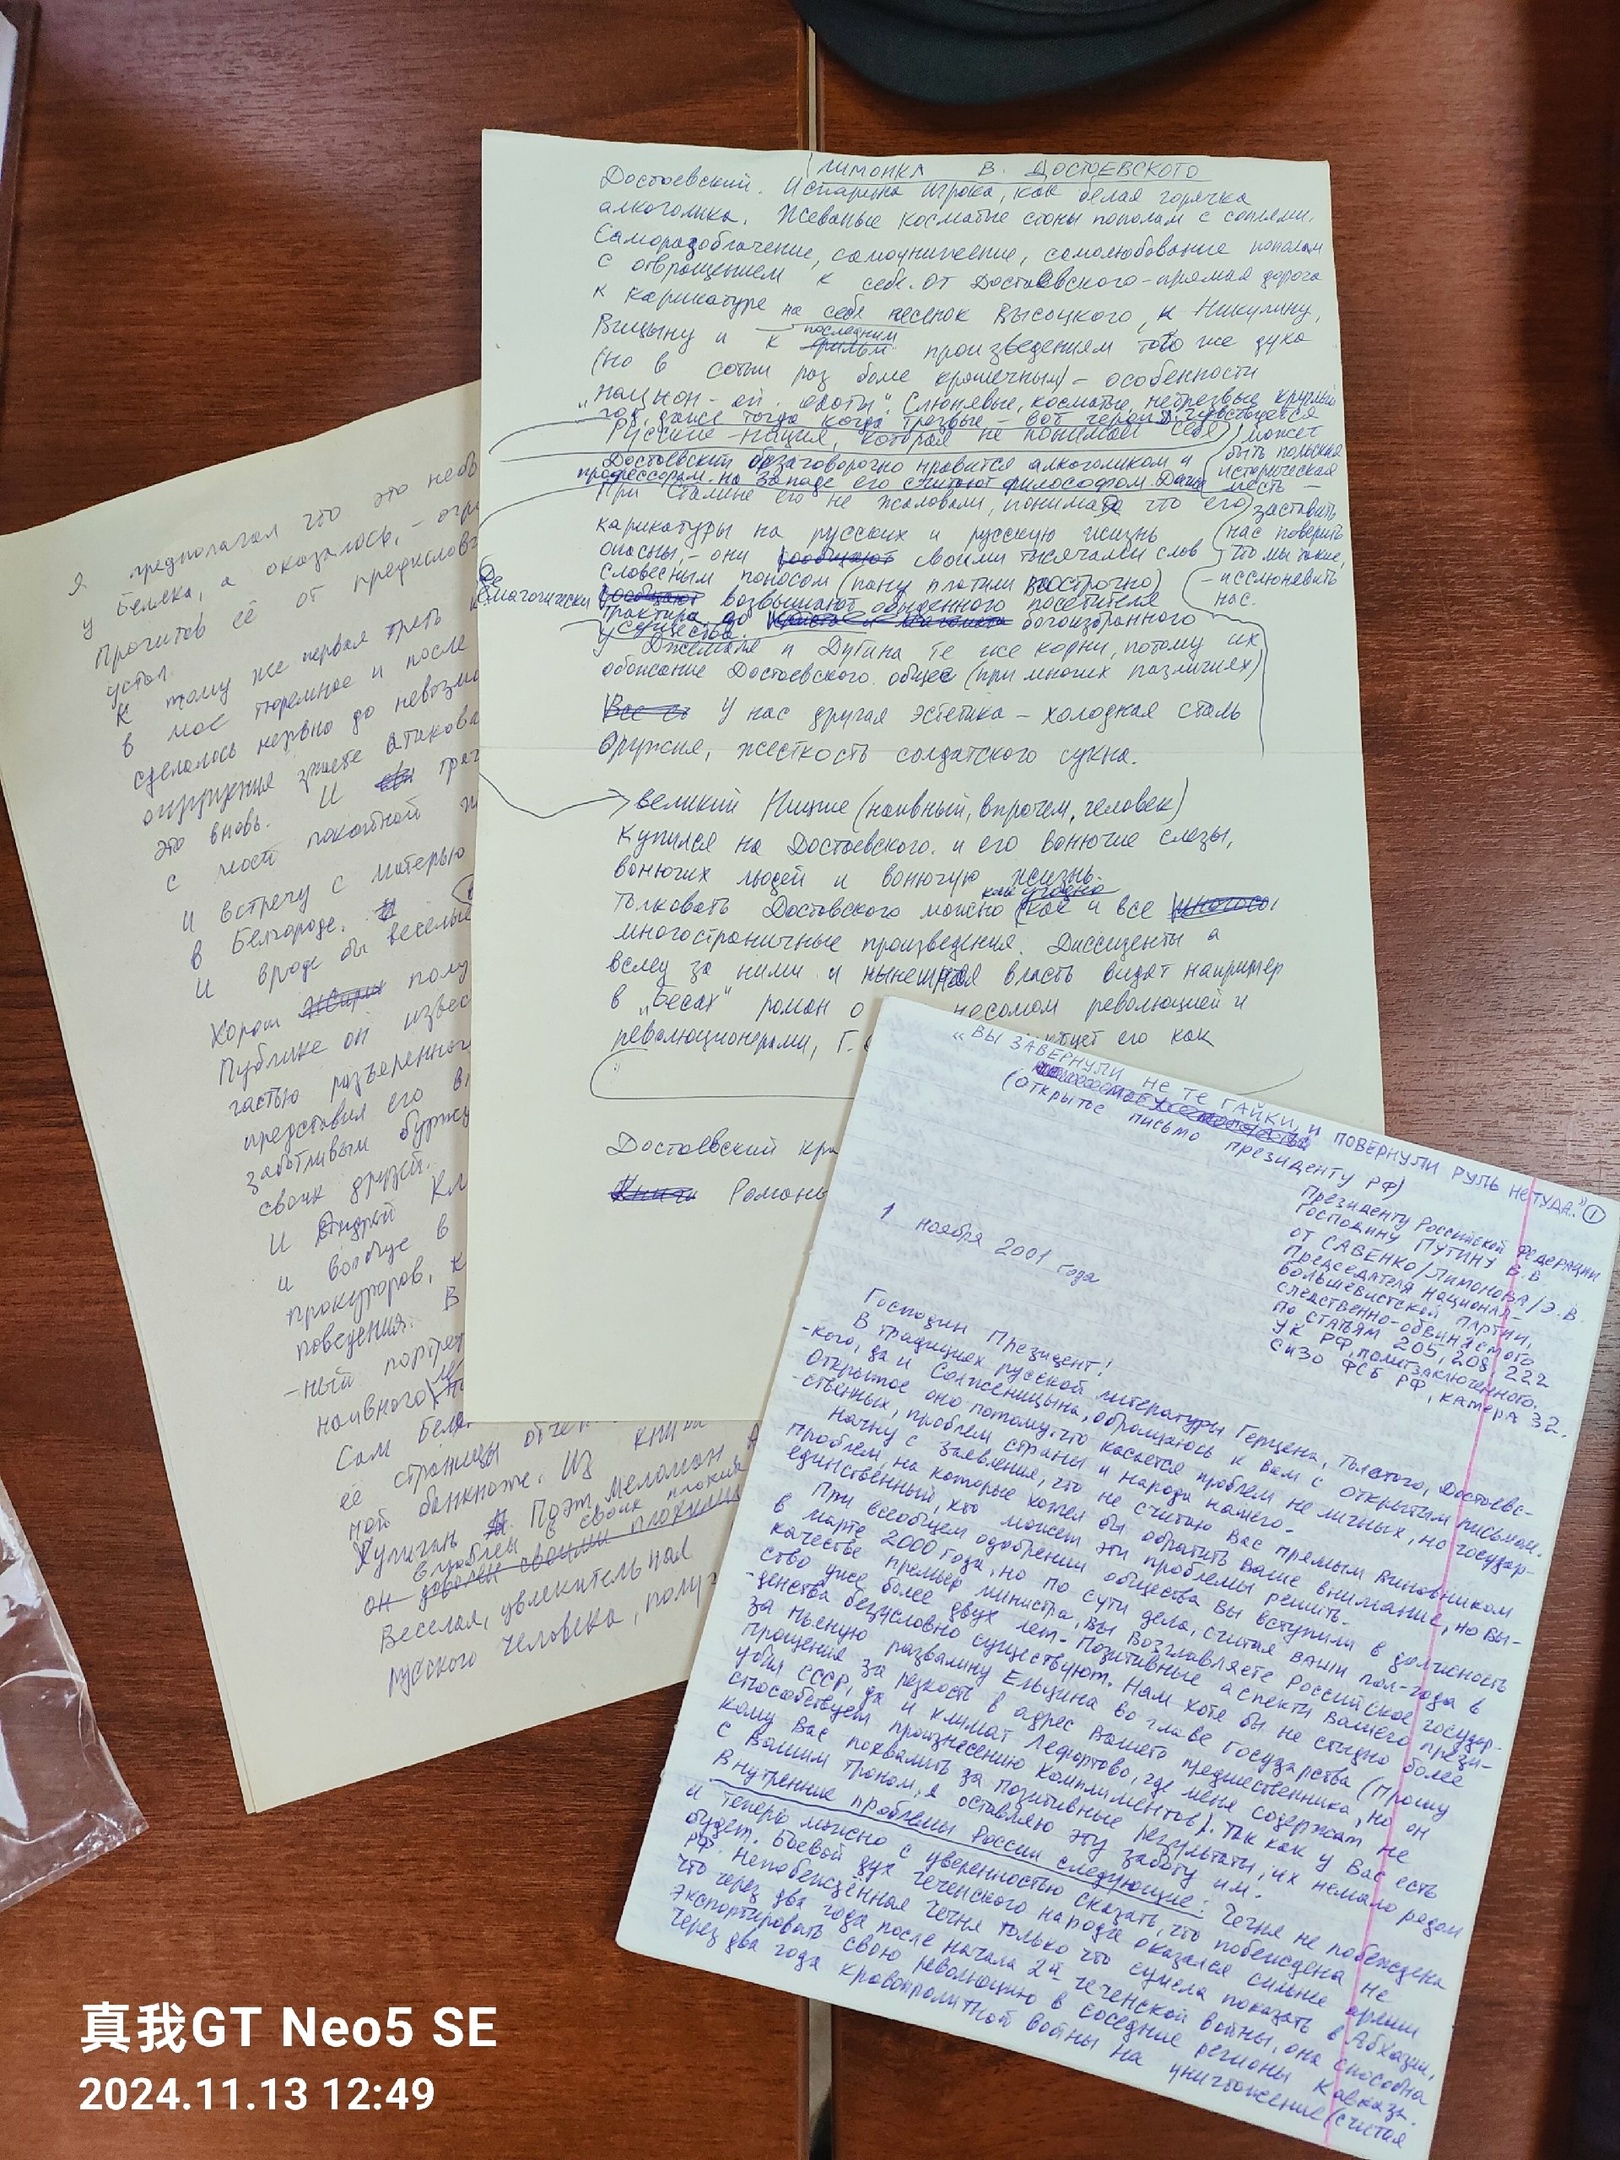 ЛИМОНКА В ДОСТОЕВСКОГО
Достоевский. Испарина игрока, как белая горячка
алкоголика. Жеваные косматые стоны пополам с соплями.
Саморазоблачение, самоунижение, самолюбование пополам
с отвращением к себе. От Достоевского - прямая дорога
к карикатуре на себя песенок Высоцкого, к Никулину,
Вицыну и к последним произведениям того же духа
(но в сотни раз более крошечным) - особенности
"национ-ой охоты". Слюнявые, косматые, нетрезвые круглый
год, даже тогда когда трезвые - вот герои Д. чувствуется
Русские - нация, которая не понимает себя
может
быть польская
историческая
месть -
заставить
нас поверить
что мы такие,
- исслюневить
нас.
Достоевский безоговорочно нравится алкоголикам и
профессорам. На Западе его считают философом. Даже
При Сталине его не жаловали, понимая что его
карикатуры на русских и русскую жизнь
опасны, - они своими тысячами слов
словесным поносом (пану платили построчно)
Демагогически возвышают обыденного посетителя
трактира до богоизбранного
существа.
У Джемаля и Дугина те же корни, потому их
обожание Достоевского общее (при многих различиях)
Все У нас другая эстетика - холодная сталь
оружия, жесткость солдатского сукна.
великий Ницше (наивный, впрочем, человек)
купился на Достоевского и его вонючие слезы,
вонючих людей и вонючую жизнь.
как угодно
Толковать Достоевского можно как и все
многостраничные произведения. Диссиденты а
вслед за ними и нынешняя власть видят например
в "Бесах" роман о несомом революцией и
революционерами, Г. его как
Достоевский
Книги Романы
Я предполагал что это
у Беляка, а оказалось, -
Прочитав её от
устал.
К тому же первая треть
в моё тюремное и после
сделалось нервно до
окружения злые атаковали
это вновь. И
с мост покатной
И встречу с матерью
в Белгороде.
И вроде бы весёлые
Хорош
Публике он
частью разъяренного
представил его
заботливым
своих друзей.
И Андрей
и вообще в
прокуроров, к
поведения. В
-ный портрет
наивного
Сам Беляк
её страницы
ной банкноте. Из книги
Хулиган Поэт, меломан
влюблен в своих плохих
он доволен своими плохими
Веселая, увлекательная
русского человека,
"ВЫ ЗАВЕРНУЛИ НЕ ТЕ ГАЙКИ, И ПОВЕРНУЛИ РУЛЬ НЕ ТУДА.." 1
(открытое письмо президенту РФ)
Президенту Российской Федерации
Господину ПУТИНУ В.В
от САВЕНКО /Лимонова/ Э.В.
Председателя Национал-
большевистской Партии,
следственно-обвиняемого
по статьям 205, 208, 222
УК РФ, политзаключенного.
СИЗО ФСБ РФ, камера 32.
1 ноября 2001 года
Господин Президент!
В традициях русской литературы Герцена, Толстого, Достоевс-
-кого, да и Солженицына, обращаюсь к Вам с открытым письмом.
Открытое оно потому, что касается проблем не личных, но государ-
-ственных, проблем страны и народа нашего.
Начну с заявления, что не считаю Вас прямым виновником
проблем, на которые хотел бы обратить Ваше внимание, но Вы -
единственный, кто может эти проблемы решить.
При всеобщем одобрении общества Вы вступили в должность
в марте 2000 года, но по сути дела, считая Ваши пол-года в
качестве премьер министра, Вы возглавляете Российское государ-
ство уже более двух лет. Позитивные аспекты Вашего прези-
-денства безусловно существуют. Нам хотя бы не стыдно более
за пьяную развалину Ельцина во главе Государства (Прошу
прощения за резкость в адрес Вашего предшественника, но он
убил СССР, да и климат Лефортово, где меня содержат не
способствует произнесению комплиментов). Так как у Вас есть
кому Вас похвалить за позитивные результаты, их немало рядом
с Вашим Троном, я оставляю эту заботу им.
Внутренние проблемы России следующие: Чечня не побеждена
и теперь можно с уверенностью сказать, что побеждена не
будет. Боевой дух чеченского народа оказался сильнее армии
РФ. Непобеждённая Чечня только что сумела показать в Абхазии,
что через два года после начала 2й чеченской войны, она способна
экспортировать свою революцию в соседние регионы Кавказа.
Через два года кровопролитной войны на уничтожение (считая
真我GT Neo5 SE
2024.11.13 12:49